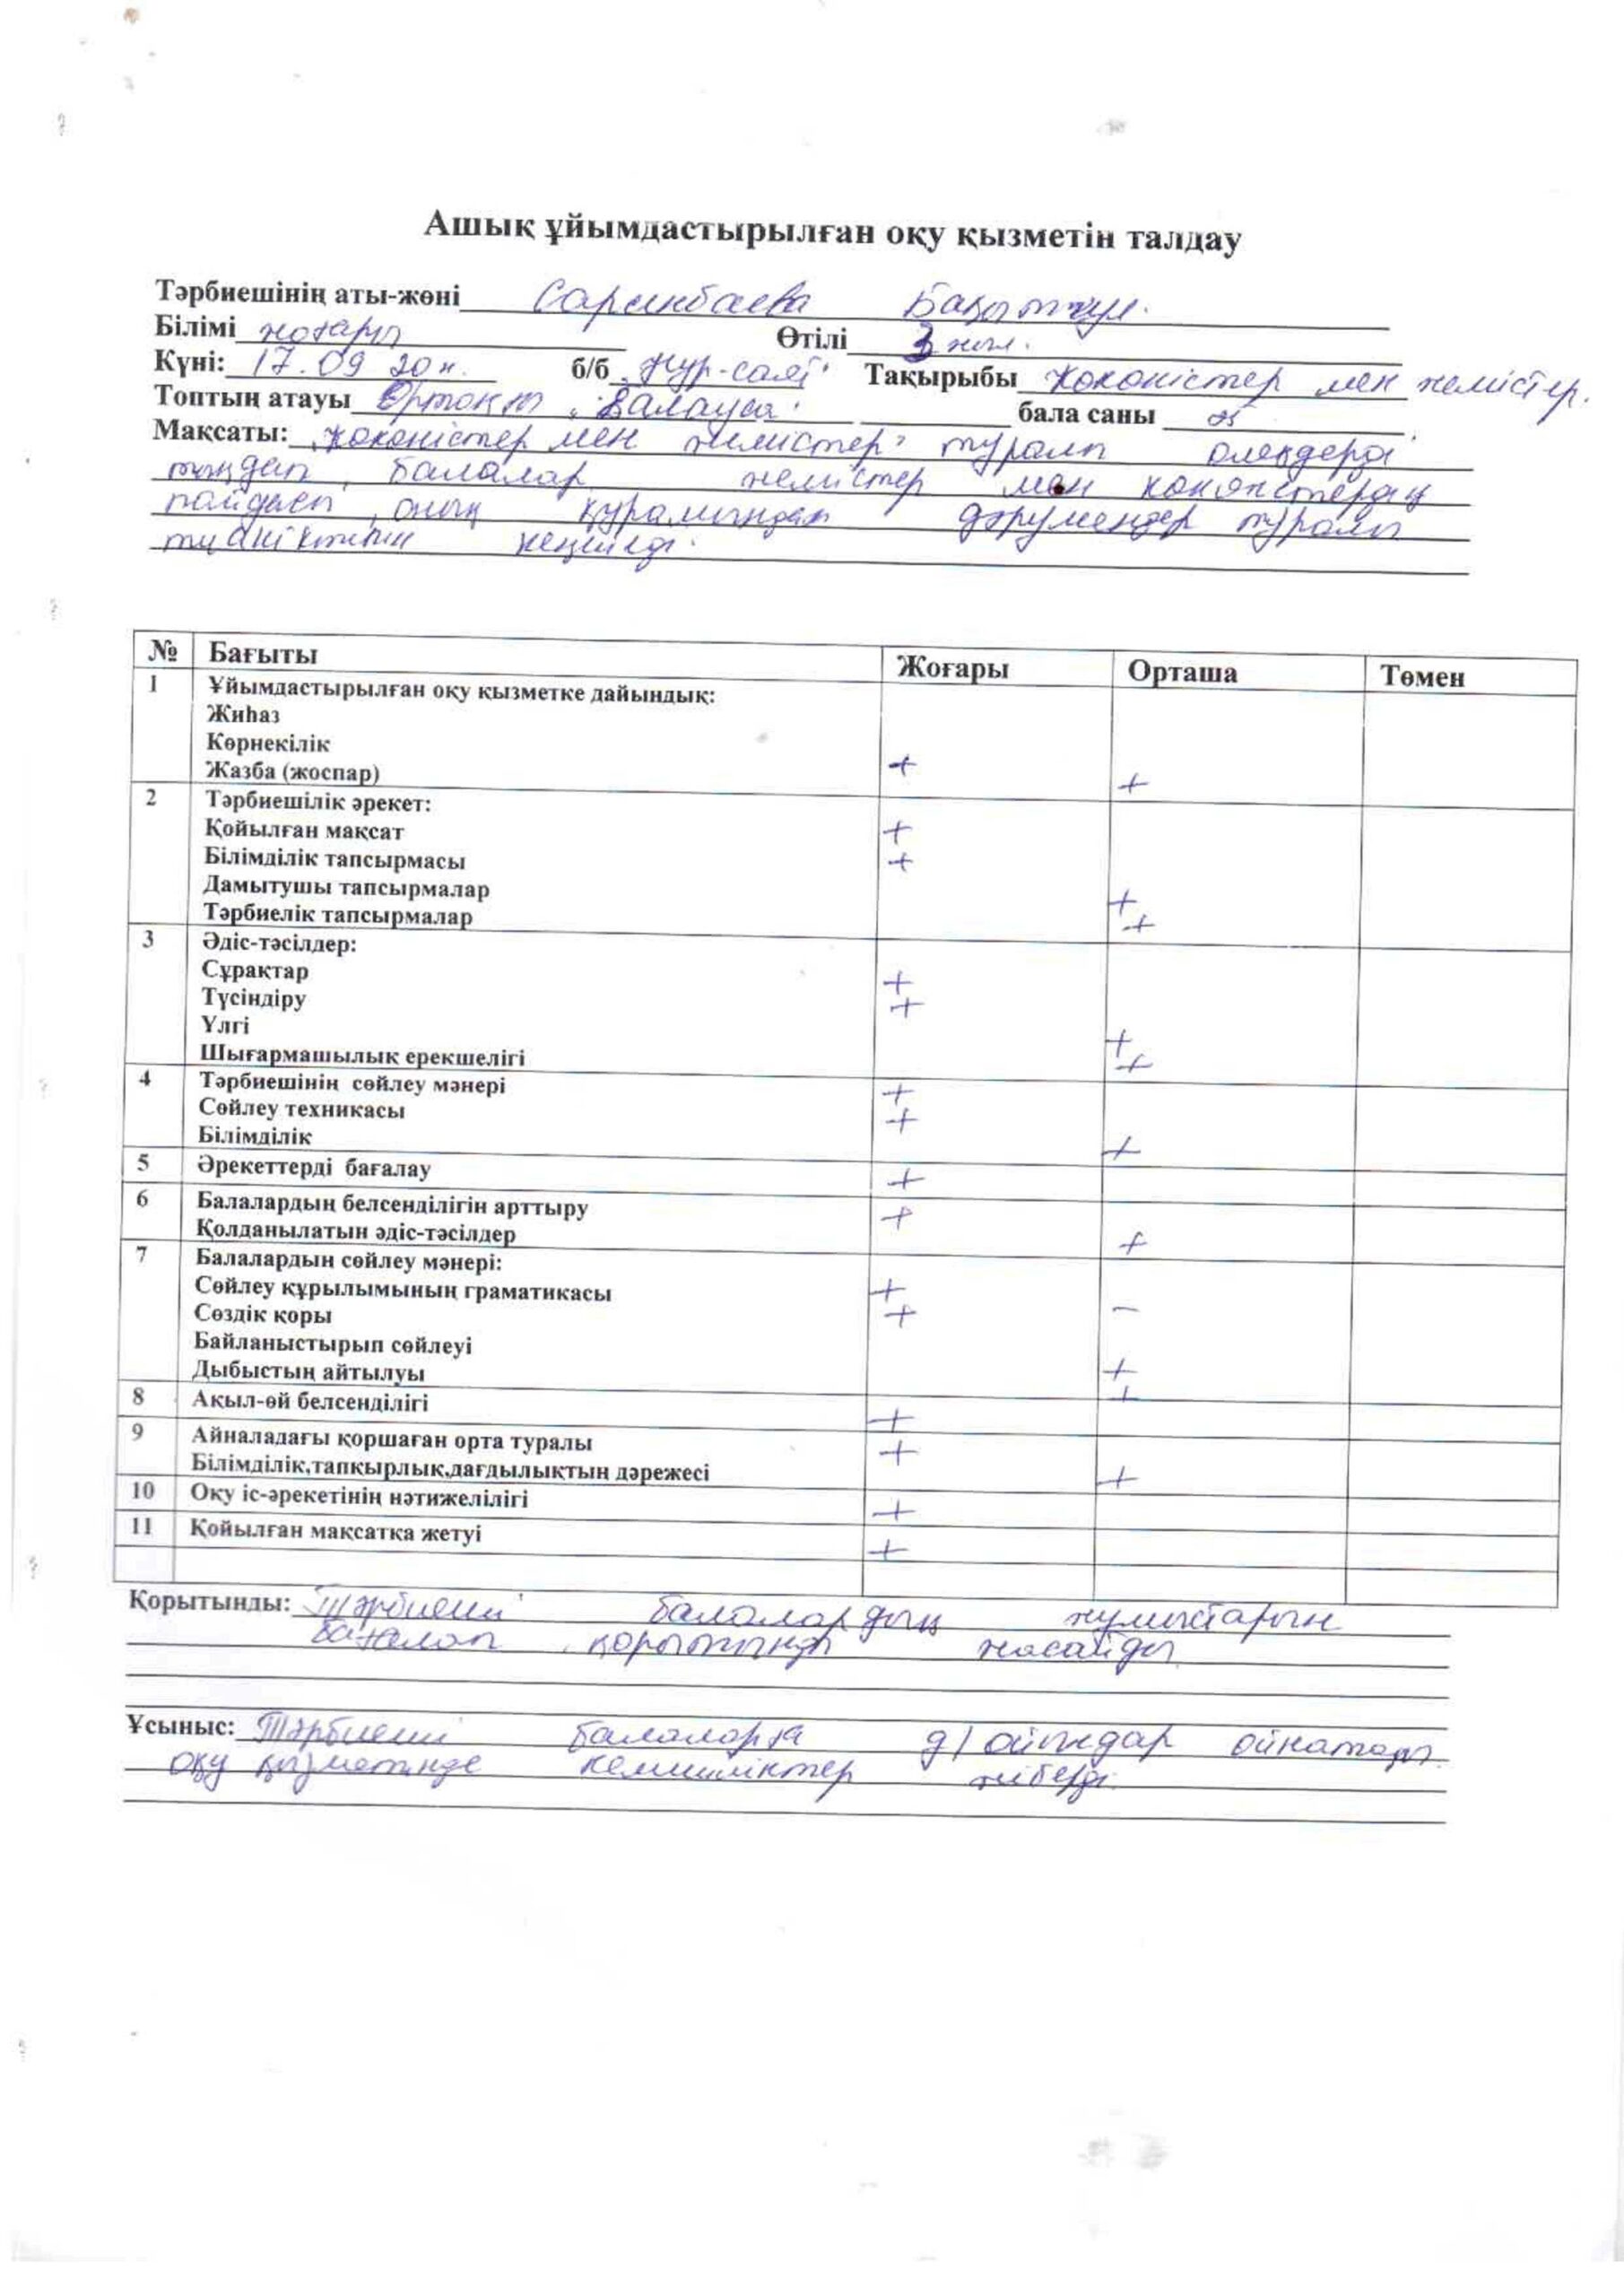 Ашық ұйымдастырылған оқу қызметін талдау
Тәрбиешінің аты-жөні Сарынбаева Бақытгүл.
Білімі жоғары Өтілі 3 жыл.
Күні: 17.09 20ж. б/б „Нұр-сәт" Тақырыбы Көкөністер мен жемістер.
Топтың атауы Ортаңғы „Балауса" бала саны 25
Мақсаты: „Көкөністер мен жемістер" туралы өлеңдерді
тыңдап, балалар жемістер мен көкөністердің
пайдасы, оның құрамындағы дәрумендер туралы
түсініктерін кеңейеді.
№ Бағыты Жоғары Орташа Төмен
1 Ұйымдастырылған оқу қызметке дайындық:
Жиһаз
Көрнекілік
Жазба (жоспар) + +
2 Тәрбиешілік әрекет:
Қойылған мақсат +
Білімділік тапсырмасы +
Дамытушы тапсырмалар +
Тәрбиелік тапсырмалар +
3 Әдіс-тәсілдер:
Сұрақтар +
Түсіндіру +
Үлгі +
Шығармашылық ерекшелігі +
4 Тәрбиешінің сөйлеу мәнері +
Сөйлеу техникасы +
Білімділік +
5 Әрекеттерді бағалау +
6 Балалардың белсенділігін арттыру +
Қолданылатын әдіс-тәсілдер +
7 Балалардын сөйлеу мәнері:
Сөйлеу құрылымының граматикасы +
Сөздік қоры + –
Байланыстырып сөйлеуі
Дыбыстың айтылуы +
+
8 Ақыл-өй белсенділігі +
9 Айналадағы қоршаған орта туралы +
Білімділік,тапқырлық,дағдылықтың дәрежесі +
10 Оқу іс-әрекетінің нәтижелілігі +
11 Қойылған мақсатқа жетуі +
Қорытынды: Тәрбиеші балалардың жұмыстарын
бағалап, қорытынды жасайды.
Ұсыныс: Тәрбиеші балаларға д/ойындар ойнатады.
оқу қызметінде кемшіліктер жіберді.